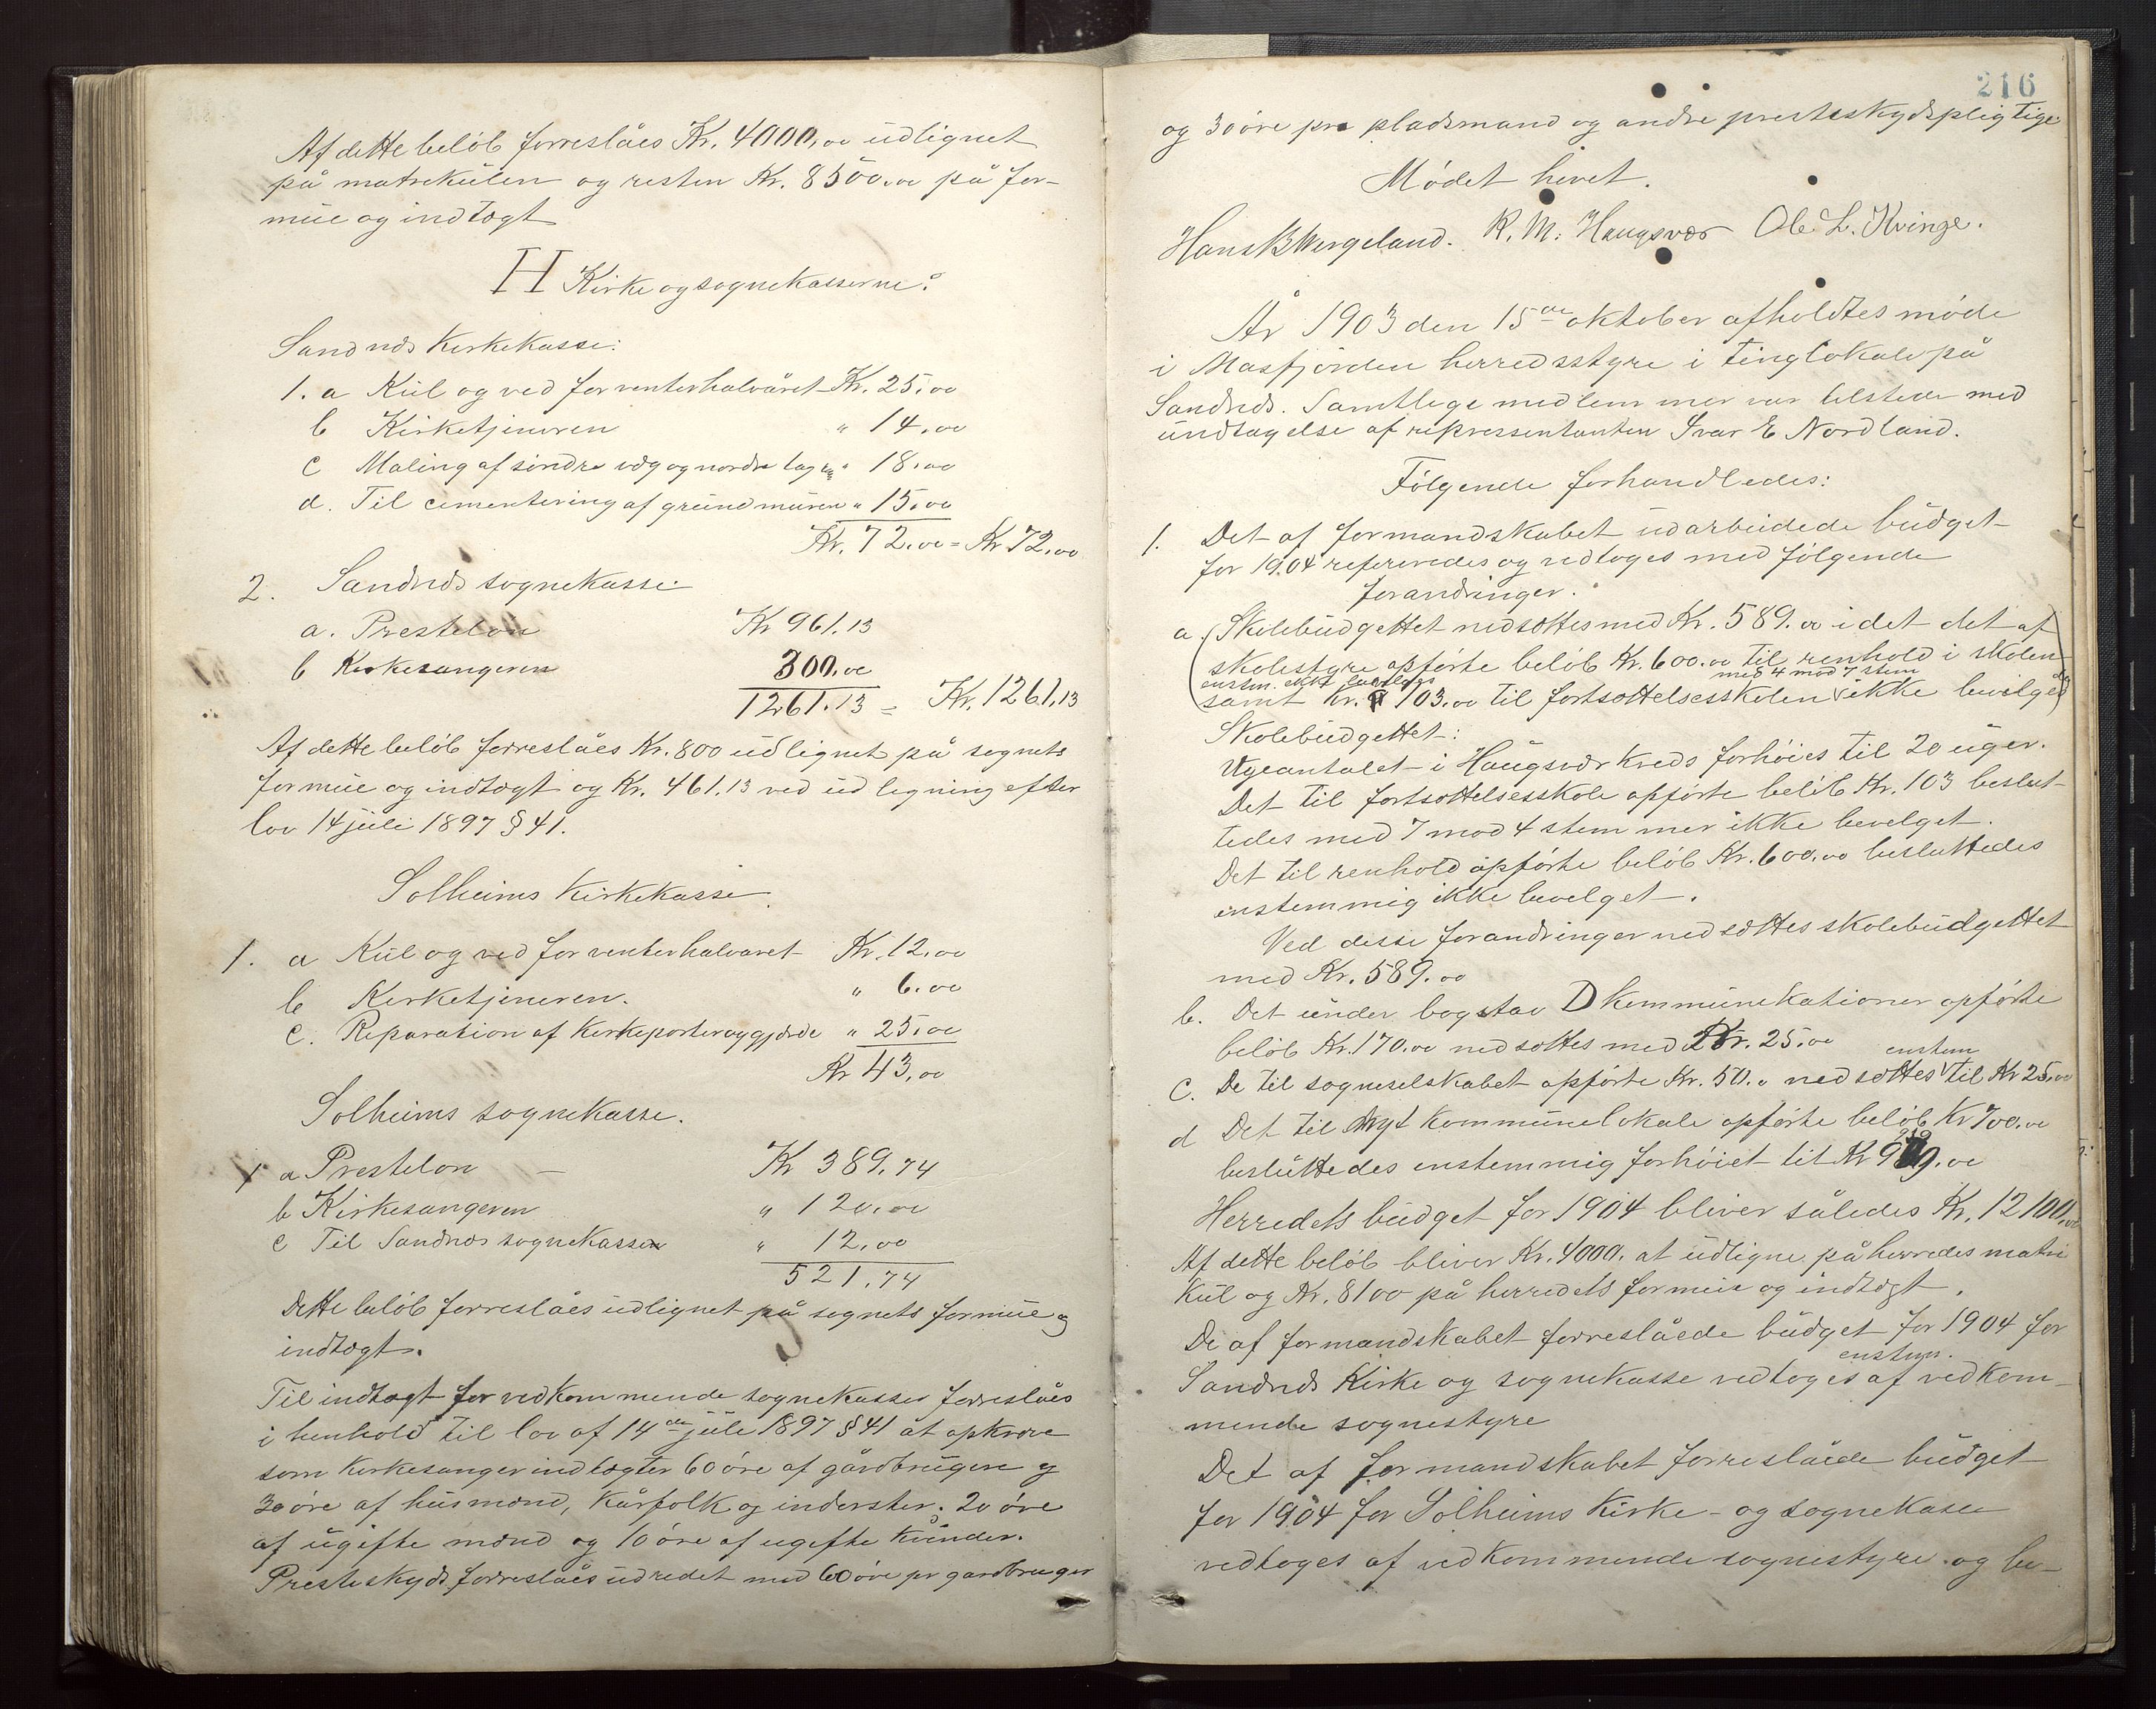 Af dette beløb forreslåes Kr. 4000,00 udlignet
på matrekulen og resten Kr. 8500,00 på for-
mue og indtægt
H Kirke og sognekasserne:
Sandnæs Kirkekasse:
1. a Kul og ved for venterhalvåret Kr. 25,00
b Kirketjeneren " 14,00
c Maling af söndre væg og nordre " 18,00
d. Til cementering af grundmuren " 15,00
Kr. 72,00 = Kr 72,00
2. Sandnæs sognekasse
a. Prestelön Kr 961.13
b Kirkesangeren 300,00
1261.13 = Kr. 1261,13
Af dette beløb forreslåes Kr. 800 udlignet på sognets
formue og indtægt og Kr. 461.13 ved udligning efter
lov 14 juli 1897 § 41.
Solheims Kirkekasse.
1. a Kul og ved for venterhalvaret Kr. 12,00
b Kerketjeneren. " 6.00
c. Reparation af Kerkeporter og gjærde " 25,00
Kr 43,00
Solheims sognekasse.
1 a Prestelön Kr 389.74
b Kirkesangeren " 120,00
c Til Sandnæs sognekasse " 12,00
521.74
Dette beløb forreslåes udlignet på sognets formue og
indtægt.
Til indtægt for vedkommende sognekasser forreslåes
i henhold til lov af 14de juli 1897 § 41 at opkræve
som Kerkesangerindtægter 60 øre af gårdbrugere og
30 øre af husmænd, Kårfolk og inderster. 20 øre
af ugifte mænd og 10 øre af ugifte Kvinder.
Presteskyds forreslåes udredet med 60 øre pr gardbruger
216
og 30 øre pr pladsmand og andre presteskydspligtige
Mødet hevet.
Hans B Wergeland. R. M. Haugsvær Ole L. Kvinge.
År 1903 den 15de oktober afholdtes møde
i Masfjorden herredsstyre i tinglokale på
Sandnæs. Samtlige medlemmer var telstede med
undtagelse af repressentanten Ivar E Nordland.
Følgende forhandledes:
1. Det af formandskabet udarbeidede budget
for 1904 refereredes og vedtoges med følgende
forandringer.
a. (Skolebudgettet nedsættes med Kr. 589.00 i det det af
skolestyre opførte beløb Kr. 600.00 til renhold i skolen
med 4 mod 7 stem
samt Kr. 103.00 til fortsættelsesskolen ikke bevilges)
Skolebudgettet:
Ugeantalet i Haugsvær Kreds forhøies til 20 uger.
Det til fortsættelsesskole opførte beløb Kr. 103 beslut-
tedes med 7 mod 4 stemmer ikke bevelget.
Det til renhold opførte beløb Kr. 600.00 besluttedes
enstemmig ikke bevelget.
Ved disse forandringer nedsættes skolebudgettet
med Kr. 589.00
b. Det under bogstav D Kommunekationer opførte
beløb Kr. 170.00 nedsættes med Kr. 25.00
enstem
c. De til sogneselskabet opførte Kr. 50.0 nedsættes til Kr 25,00
d Det til Nyt Kommunelokale opførte beløb Kr 700.00
besluttedes enstemmig forhøiet til Kr 9
Herredets budget for 1904 bliver således Kr. 12100,00
Af dette beløb bliver Kr. 4000. at udligne på herredes matri
kul og Kr. 8100 på herredets formue og indtægt.
De af formandskabet forreslåede budget for 1904 for
enstem.
Sandnæs Kirke og sognekasse vedtoges af vedkom-
mende sognestyre
Det af formandskabet forreslåede budget
for 1904 for Solheims Kirke- og sognekasse
vedtoges af vedkommende sognestyre og be-